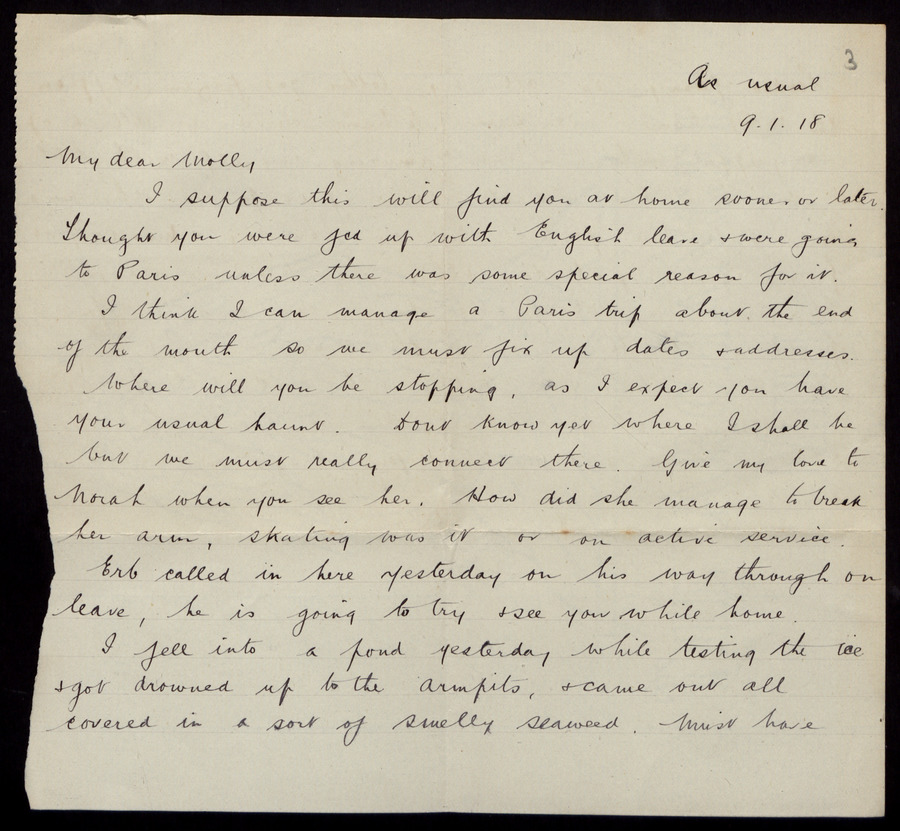 3
As usual
9.1.18
My dear Molly
I suppose this will find you at home sooner or later.
Thought you were fed up with English leave & were going
to Paris unless there was some special reason for it.
I think I can manage a Paris trip about the end
of the month so we must fix up dates & addresses.
Where will you be stopping, as I expect you have
your usual haunt. Dont know yet where I shall be
but we must really connect there. Give my love to
Norah when you see her. How did she manage to break
her arm, skating was it or on active service.
Erb called in here yesterday on his way through on
leave, he is going to try & see you while home.
I fell into a pond yesterday while testing the ice
& got drowned up to the armpits, & came out all
covered in a sort of smelly seaweed. Must have